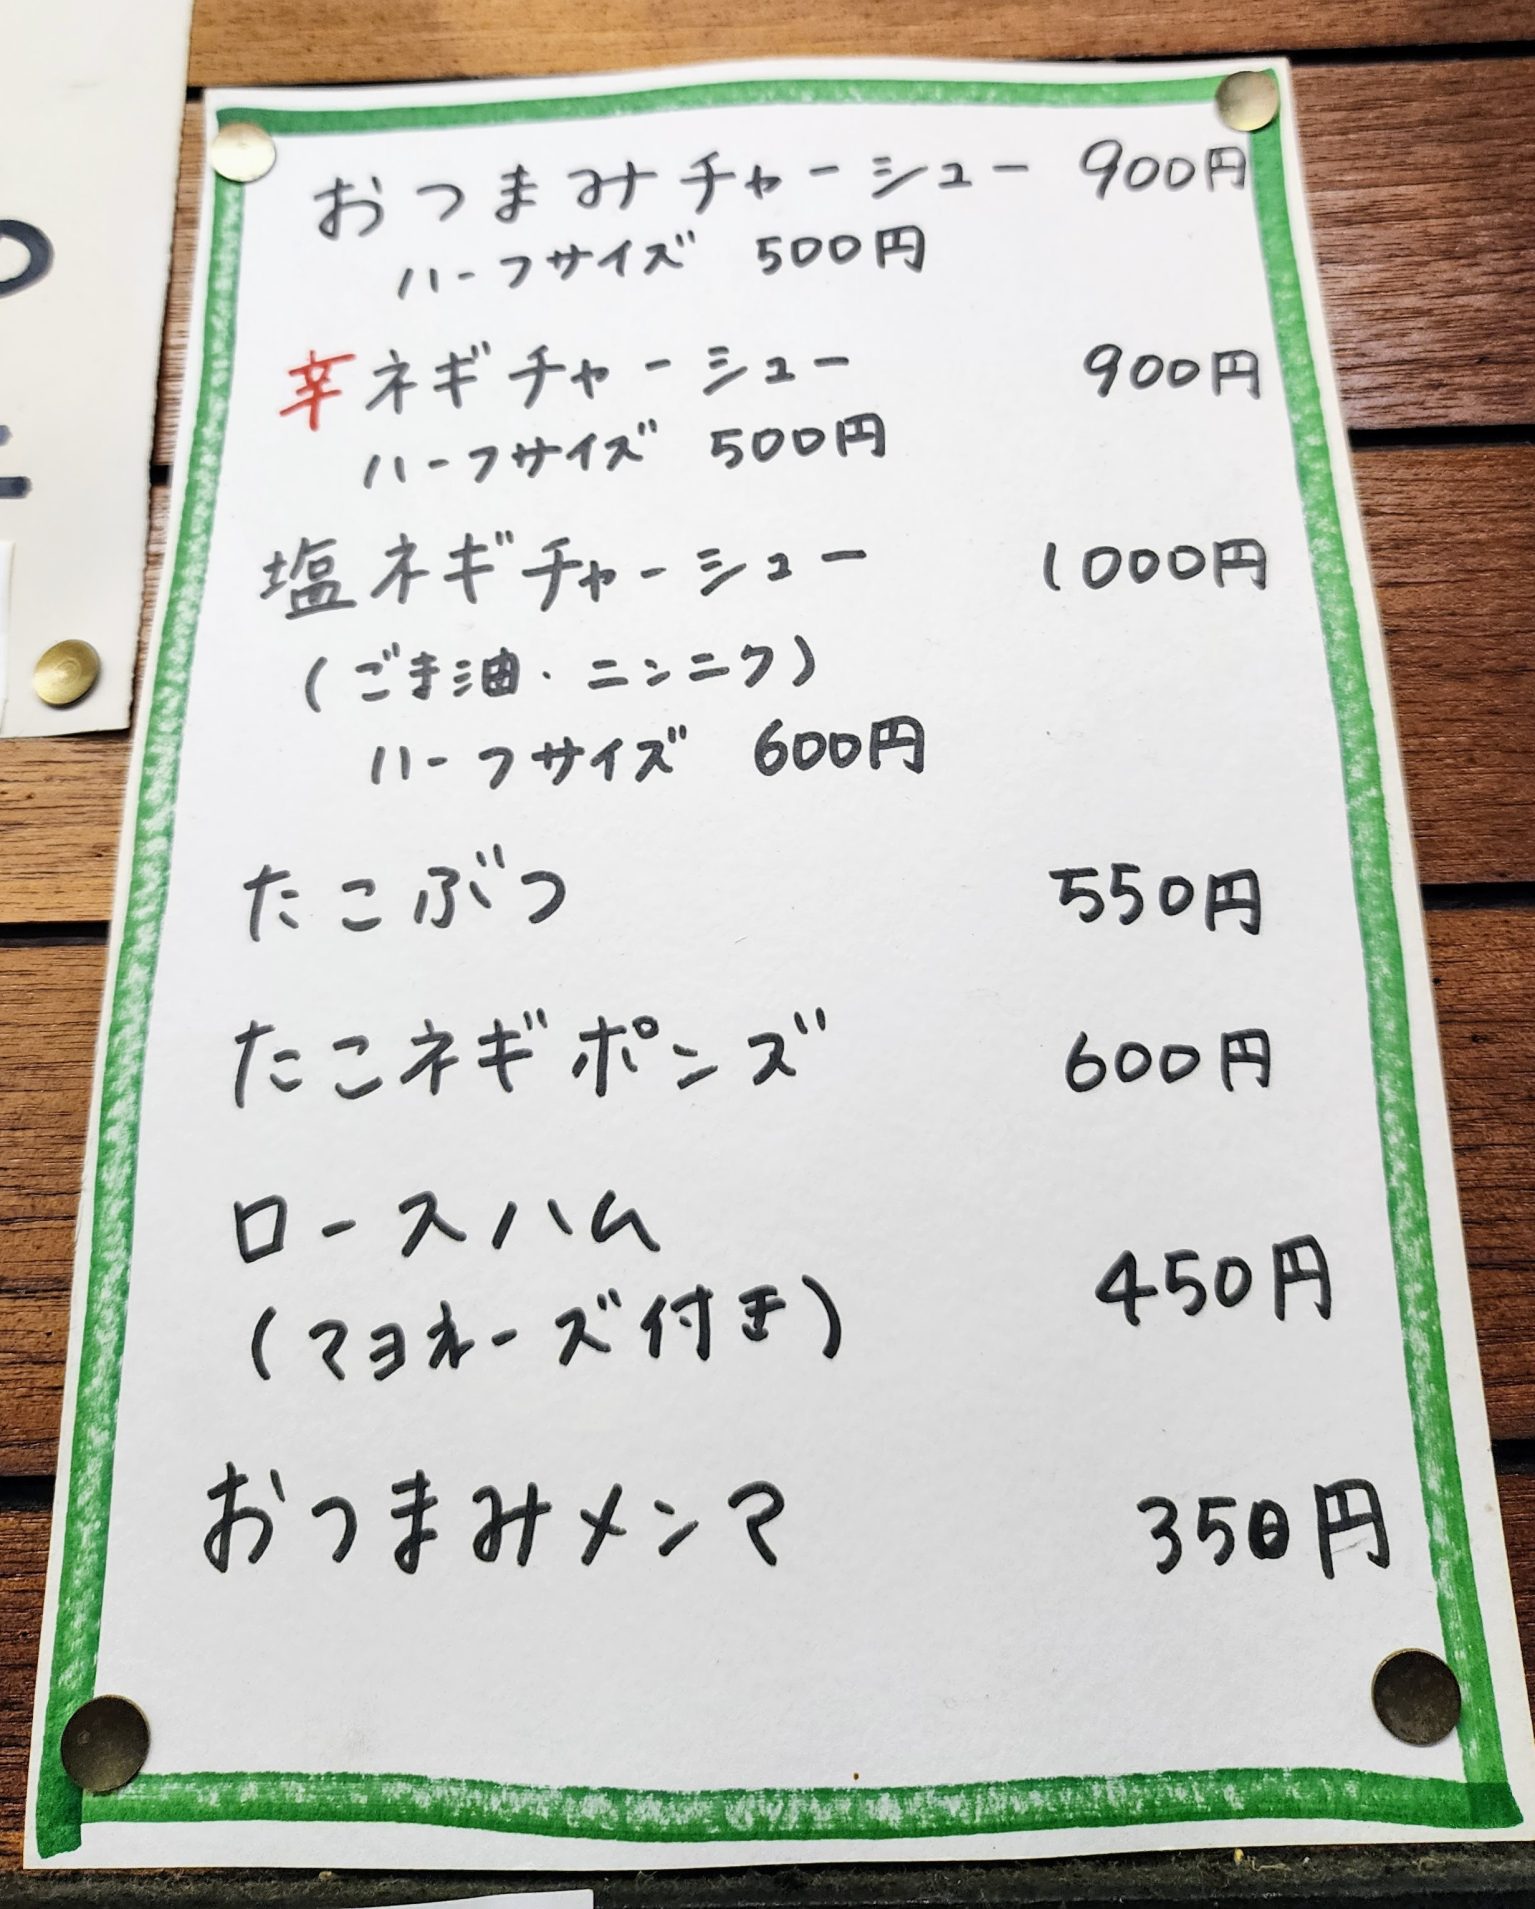 おつまみチャーシュー 900円
ハーフサイズ 500円
辛ネギチャーシュー 900円
ハーフサイズ 500円
塩ネギチャーシュー 1000円
(ごま油・ニンニク)
ハーフサイズ 600円
たこぶつ 550円
たこネギポンズ 600円
ロースハム
(マヨネーズ付き) 450円
おつまみメンマ 350円